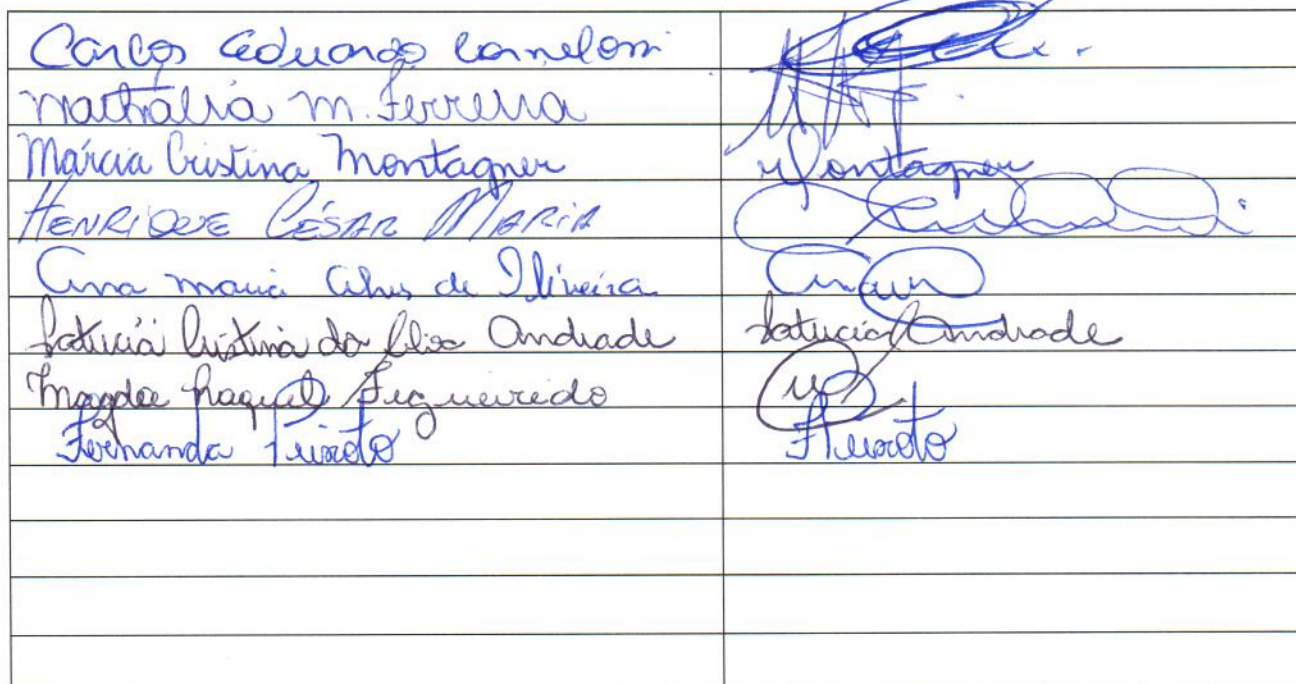 Carlos Eduardo
Nathália M. Ferreira
Márcia Cristina Montagner Montagner
HENRIQUE CÉSAR MARIA
Ana Maria Alves de Oliveira
Patrícia Cristina da Silva Andrade Patrícia Andrade
Magda Raquel Figueiredo
Fernanda Peixoto FPeixoto